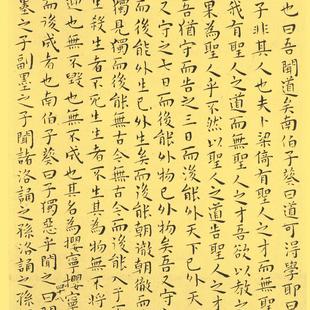 也曰吾聞道矣南伯子葵曰道可得學耶曰
子非其人也夫卜梁倚有聖人之才而無
我有聖人之道而無聖人之才吾欲以教之
果為聖人乎不然以聖人之道告聖人之才
吾猶守而告之三日而後能外天下已外天
又守之七日而後能外物已外物矣吾又守之
而後能外生已外生矣而後能朝徹朝徹而
獨見獨而後能無古今無古今而後能入于
生殺生者不死生生者不生其為物無不將
迎也無不毀也無不成也其名為攖寧攖寧
而後成者也南伯子葵曰子獨惡乎聞之曰聞
墨之子副墨之子聞諸洛誦之孫洛誦之孫